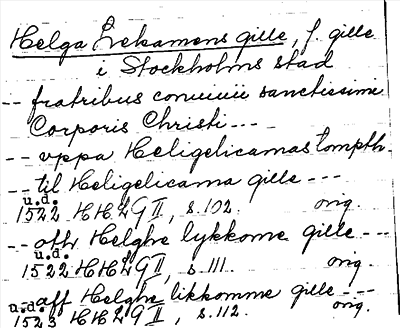 Helga Lekamens gille, f. gille
i Stockholms stad
-- fratribus conuiuii sanctissimi
Corporis Christi ---
-- vppa Heligelicamas tompth
-- til Heligelicama gille ---
u.d.
1522 HH LG II, s. 102. orig.
-- aff Helghe lykkome gille ---
u.d.
1522 HH LG II, s. 111. orig.
-- aff Helghe likkomme gille ---
u.d.
1523 HH LG II, s. 112. orig.